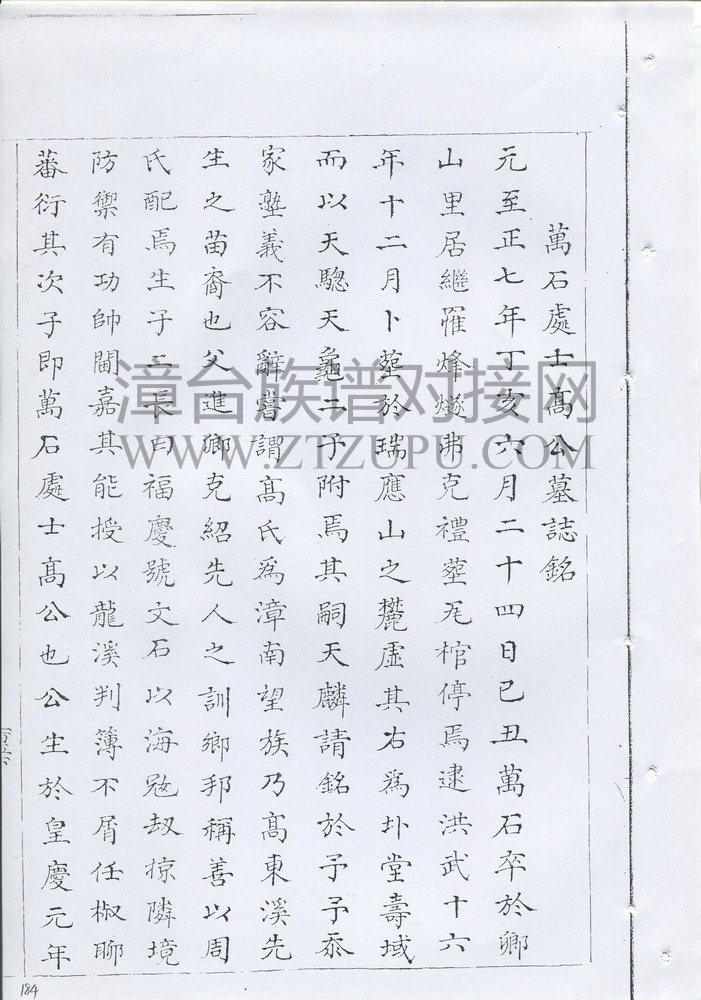 萬石處士髙公墓誌銘
元至正七年丁亥六月二十四日己丑萬石卒於鄉
山里居繼罹烽燧弗克禮塟旡棺停焉逮洪武十六
年十二月卜塟於瑞應山之麓虛其右爲卟堂壽域
而以天驄天龜二子附焉其嗣天麟請銘於予予忝
家塾義不容辭嘗謂髙氏爲漳南望族乃髙東溪先
生之苗裔也父進卿克紹先人之訓鄉邦稱善以周
氏配焉生子二長曰福慶號文石以海㓂刼掠隣境
防禦有功帥閫嘉其能授以龍溪判簿不屑任椒聊
蕃衍其次子即萬石處士髙公也公生於皇慶元年
184
漳台族谱对接网
WWW.ZTZUPU.COM